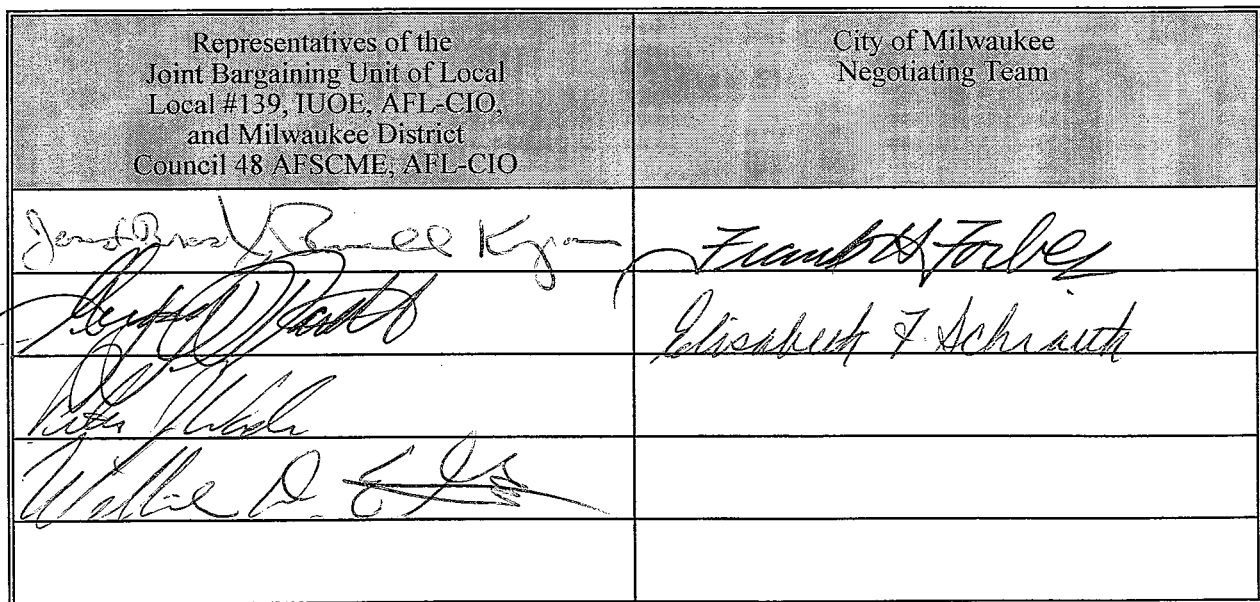 Representatives of the
Joint Bargaining Unit of Local
Local #139, IUOE, AFL-CIO,
and Milwaukee District
Council 48 AFSCME, AFL-CIO
City of Milwaukee
Negotiating Team
Frank H Forbes
Elisabeth F. Schrauth
Willie D.